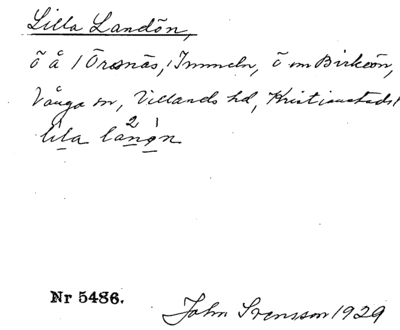 Lilla Landön,
ö å / Örsnäs, / Immeln, ö om Birkeön,
Vånga sn, Villands hd, Kristianstads l
lila lanön
2 1
Nr 5486.
John Svensson 1929